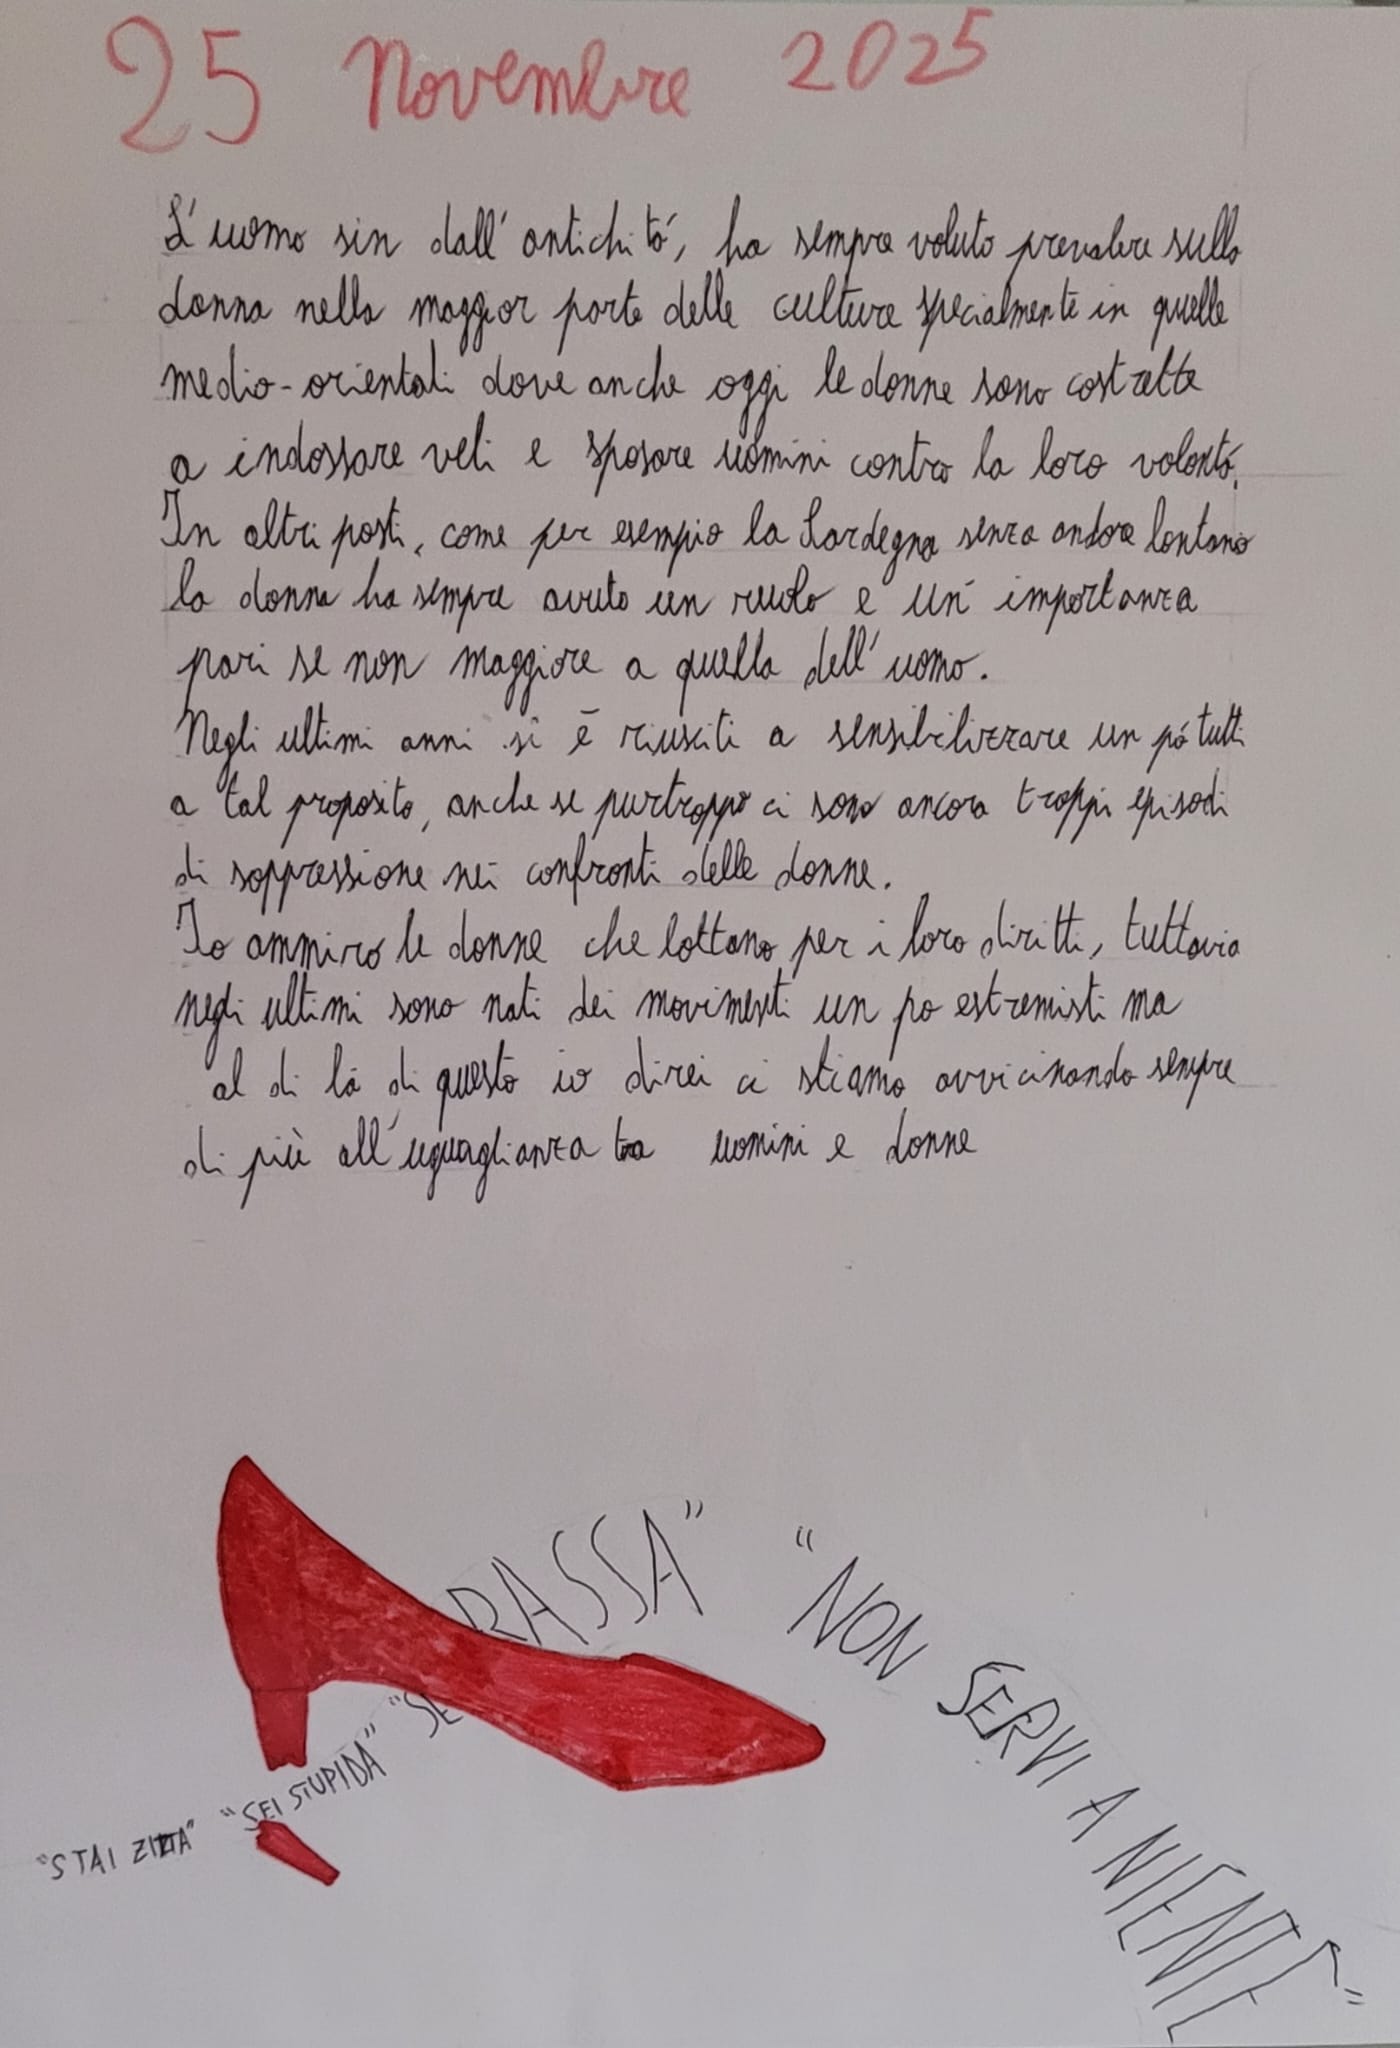 25 Novembre 2025
L'uomo sin dall'antichitá, ha sempre voluto prevalere sulla
donna nella maggior parte delle culture specialmente in quelle
medio-orientali dove anche oggi le donne sono costrette
a indossare veli e sposare uomini contro la loro volontá.
In altri posti, come per esempio la Sardegna senza andare lontano
la donna ha sempre avuto un ruolo e un' importanza
pari se non maggiore a quella dell'uomo.
Negli ultimi anni si è riusciti a sensibilizzare un pó tutti
a tal proposito, anche se purtroppo ci sono ancora troppi episodi
di soppressione nei confronti delle donne.
Io ammiro le donne che lottano per i loro diritti, tuttavia
negli ultimi sono nati dei movimenti un po estremisti ma
al di lá di questo io direi ci stiamo avvicinando sempre
di più all'uguaglianza tra uomini e donne
"STAI ZITTA" "SEI STUPIDA" "SE RASSA" "NON SERVI A NIENTE"